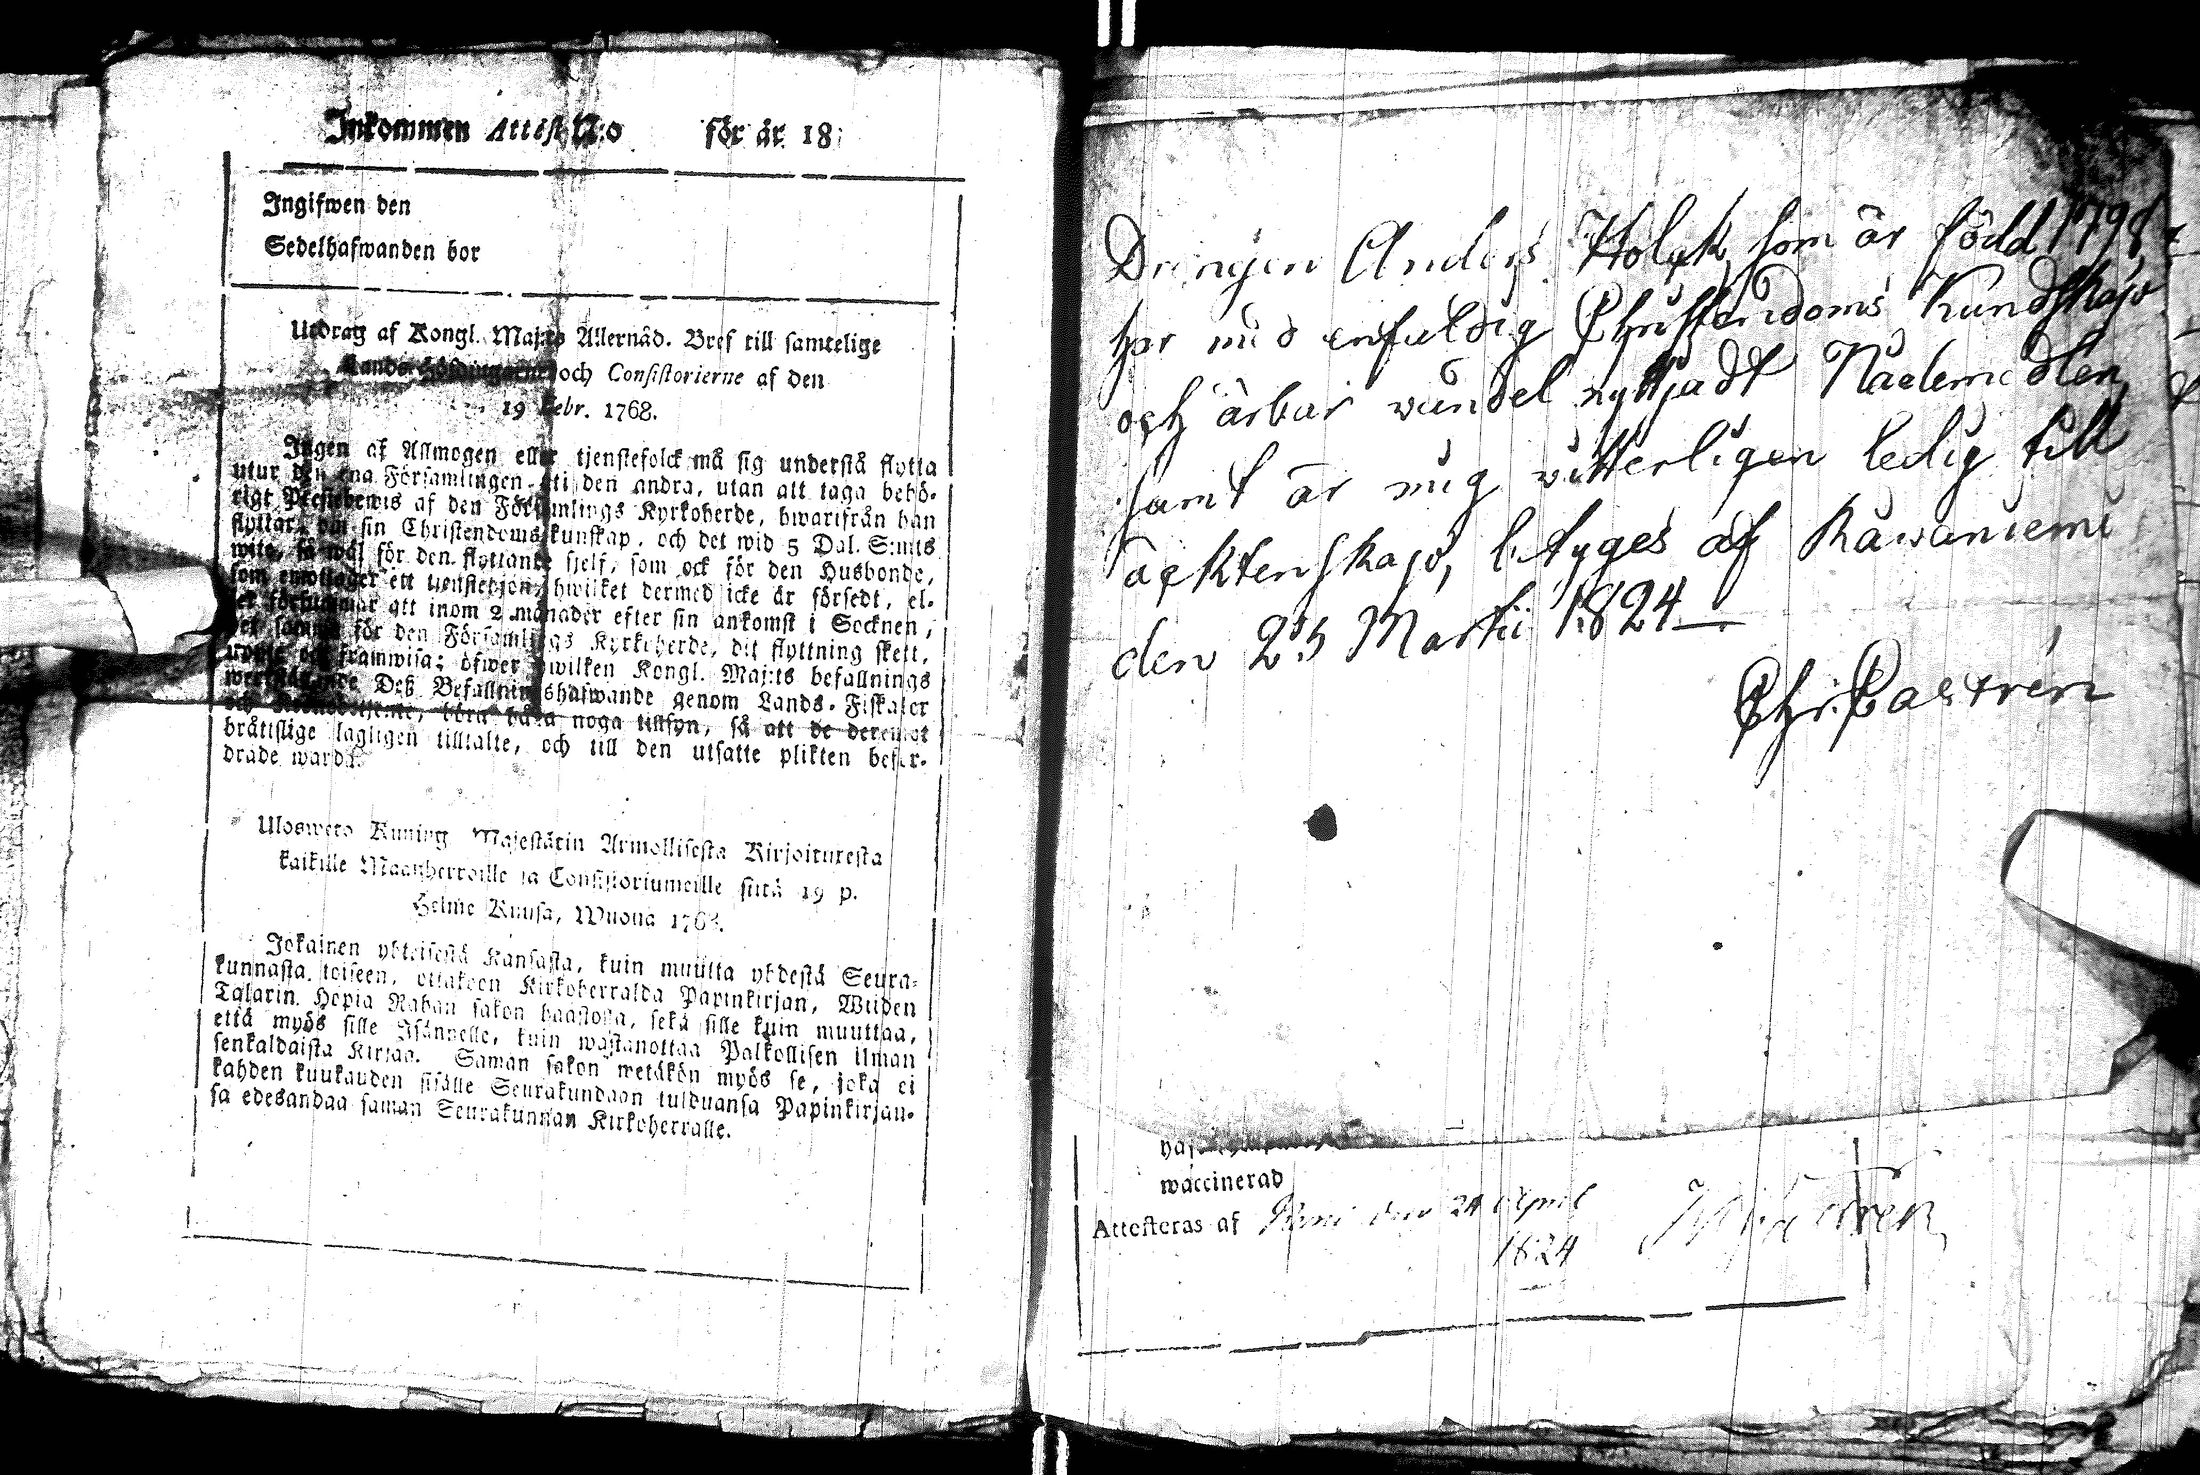 Inkommen Attest N:o för år 18
Ingifwen den
Sedelhafwanden bor
Utdrag af Kongl. Maj:ts Allernåd. Bref till samtelige
Lands-Höfdingarne och Consistorierne af den
19 Febr. 1768.
Ingen af Allmogen eller tjenstefolck må sig understå flytta
utur den ena Församlingen uti den andra, utan att taga behö-
rigt Prestebewis af den Församlings Kyrkoherde, hwarifrån han
flyttar, om sin Christendoms kunskap, och det wid 5 Dal. S:mts
wite, så wäl för den flyttande sjelf, som ock för den Husbonde,
som emottager ett tjenstehjon, hwilket dermed icke är försedt, el-
ler försummar att inom 2 månader efter sin ankomst i Socknen,
det samma för den Församlings Kyrkoherde, dit flyttning skett,
upte och framwisa; öfwer hwilken Kongl. Maj:ts befallnings
werkställande Deß Befallningshafwande genom Lands-Fiskaler
och böra hafwa noga tillsyn, så att de deremot
bråttslige lagligen tilltalte, och till den utsatte plikten befor-
drade warda.
Uloswero Kuning Majestätin Armollisesta Kirjoituresta
kaikille Maanherroille ja Consistoriumeille siitä 19 p.
Helme Kuusa, Wuona 1768.
Jokainen yhteisestä Kansasta, kuin muutta yhdestä Seura-
kunnasta toiseen, ottakoon Kirkoherralda Papinkirjan, Wiiden
Talarin Hopia Rahan sakon haastolla, sekä sille kuin muuttaa,
että myös sille Isännelle, kuin wastanottaa Palkollisen ilman
senkaldaista Kirjaa. Saman sakon wetäkön myös se, joka ei
kahden kuukauden sisälle Seurakundaan tulduansa Papinkirjan-
sa edesandaa saman Seurakunnan Kirkoherralle.
Drengen Anders Holck, som är född 1798,
har med enfuldig Christendoms Kundskap
och ärbar vandel nyttjadt Nådemedlen,
samt är mig vitterligen ledig till
ächtenskap, betyges af Råwaniemi
den 25 Martii 1824
Chr: Castrén
waccinerad
Attesteras af Kemi den 24 April
1824